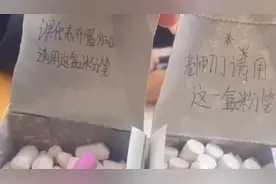 课代表布置作业
请用这盒粉笔
*
老师们请用
这一盒粉笔